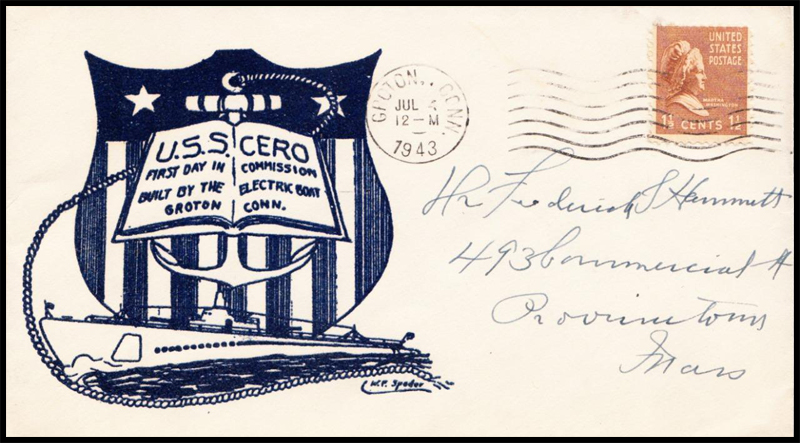 U.S.S. CERO
FIRST DAY IN COMMISSION
BUILT BY THE ELECTRIC BOAT
GROTON CONN.
W.F. Speder
GROTON, CONN.
JUL 4
12-M
1943
UNITED
STATES
POSTAGE
MARTHA
WASHINGTON
1½ CENTS 1½
Mr Frederick S Hammett
493 Commercial St
Provincetown
Mass